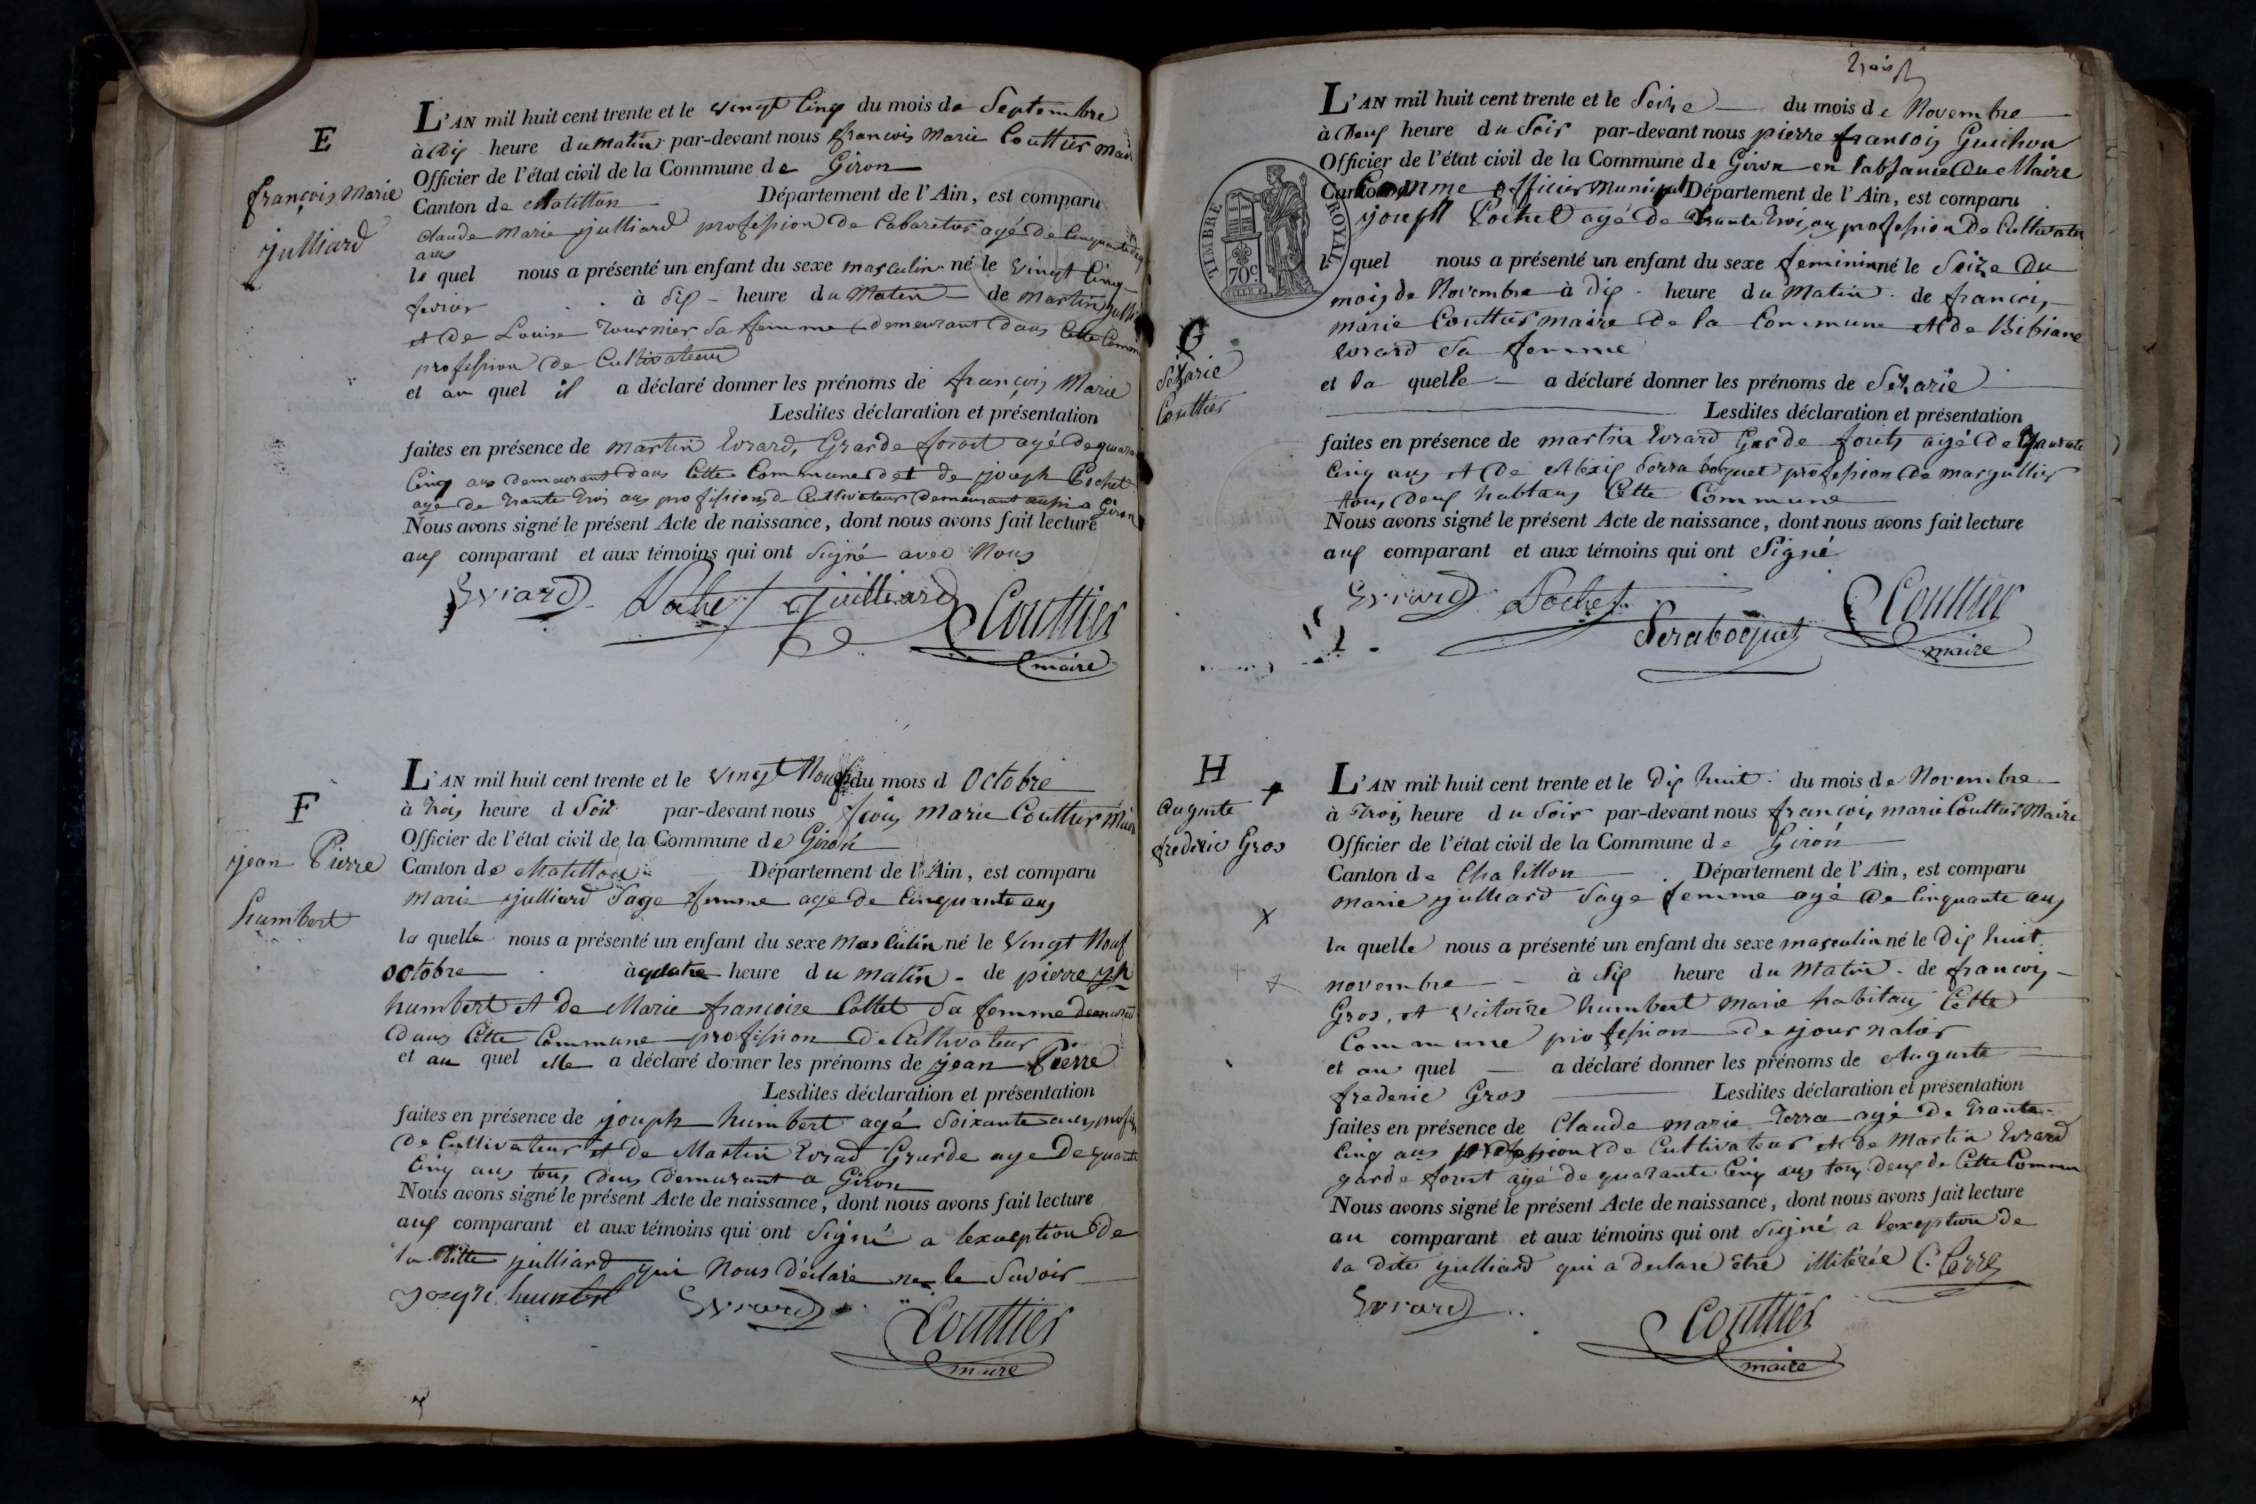 E
françois Marie
julliard
L'AN mil huit cent trente et le vingt Cinq du mois de Septembre
à dix heure du Matin par-devant nous francois Marie Couttier Maire
Officier de l'état civil de la Commune de Giron
Canton de Chatillon Département de l'Ain, est comparu
Claude Marie julliard profession de Cabaretier agé de Cinquante
ans
le quel nous a présenté un enfant du sexe masculin né le vingt Cinq
à dix heure du Matin de Martin
et de Louise Tournier Sa femme demeurant dans Cette
profession de Cultivateur
et au quel il a déclaré donner les prénoms de françois Marie
Lesdites déclaration et présentation
faites en présence de martin Evrard, Garde foret agé de
Cinq ans demeurant dans Cette Commune et de joseph Pochet
agé de trante trois ans profession de Cultivateur demeurant aussi a Giron
Nous avons signé le présent Acte de naissance, dont nous avons fait lecture
aux comparant et aux témoins qui ont Signé avec Nous
Evrard Pochet julliard Couttier
maire
F
jean Pierre
humbert
L'AN mil huit cent trente et le vingt Nouf du mois d Octobre
à trois heure d Soir par-devant nous Marie Couttier
Officier de l'état civil de la Commune de Giron
Canton de Chatillon Département de l'Ain, est comparu
Marie julliard Sage femme age de Cinquante ans
la quelle nous a présenté un enfant du sexe Masculin né le Vingt Nouf
octobre à quatre heure du matin de pierre
humbert et de Marie françoise Collet Sa femme
dans Cette Commune profession de Cultivateur
et au quel elle a déclaré donner les prénoms de jean Pierre
Lesdites déclaration et présentation
faites en présence de joseph humbert agé Soixante ans
de Cultivateur et de Martin Evrad Garde age de quarante
Cinq ans tous deux demeurant a Giron
Nous avons signé le présent Acte de naissance, dont nous avons fait lecture
aux comparant et aux témoins qui ont Signé a lexception de
la ditte julliard qui Nous déclaré ne le Savoir
humbert Evrard Couttier
maire
trois
G
Sézarie
Couttier
TIMBRE ROYAL
70c
L'AN mil huit cent trente et le Seize du mois de Novembre
à deux heure du Soir par-devant nous pierre francois Guichon
Officier de l'état civil de la Commune de Giron en labsance du Maire
Canton Comme officier municipal Département de l'Ain, est comparu
joseph Pochet agé de trante trois ans profession de Cultivateur
le quel nous a présenté un enfant du sexe feminin né le Seize du
mois de Novembre à dix heure du Matin de francois
marie Couttier maire de la Commune et de Bibiane
Evrard Sa femme
et la quelle a déclaré donner les prénoms de Sezarie
Lesdites déclaration et présentation
faites en présence de martin Evrard Garde forets agé de quarante
Cinq ans et de Aléxis Serraboquet profession de margullier
tous deux habtans Cette Commune
Nous avons signé le présent Acte de naissance, dont nous avons fait lecture
aux comparant et aux témoins qui ont Signé
Evrard Pochet Couttier
Seraboquet maire
H
Auguste
frederic Gros
L'AN mil huit cent trente et le Dix huit du mois de Novembre
à Trois heure du Soir par-devant nous francois marie Couttier Maire
Officier de l'état civil de la Commune de Giron
Canton de Chatillon Département de l'Ain, est comparu
marie julliard Sage femme agé de Cinquante ans
la quelle nous a présenté un enfant du sexe masculin né le Dix huit
novembre à Six heure du Matin de francois
Gros, et Victoire humbert Marie habitans Cette
Commune profession de journalier
et au quel a déclaré donner les prénoms de Auguste
frederic Gros Lesdites déclaration et présentation
faites en présence de Claude marie agé de Trante
Cinq ans profession de Cultivateur et de Martin Evrard
garde foret agé de quarante Cinq ans tous deux de Cette Commun
Nous avons signé le présent Acte de naissance, dont nous avons fait lecture
au comparant et aux témoins qui ont Signé a lexception de
la dite julliard qui a declaré etre illitérée
Evrard Couttier
maire